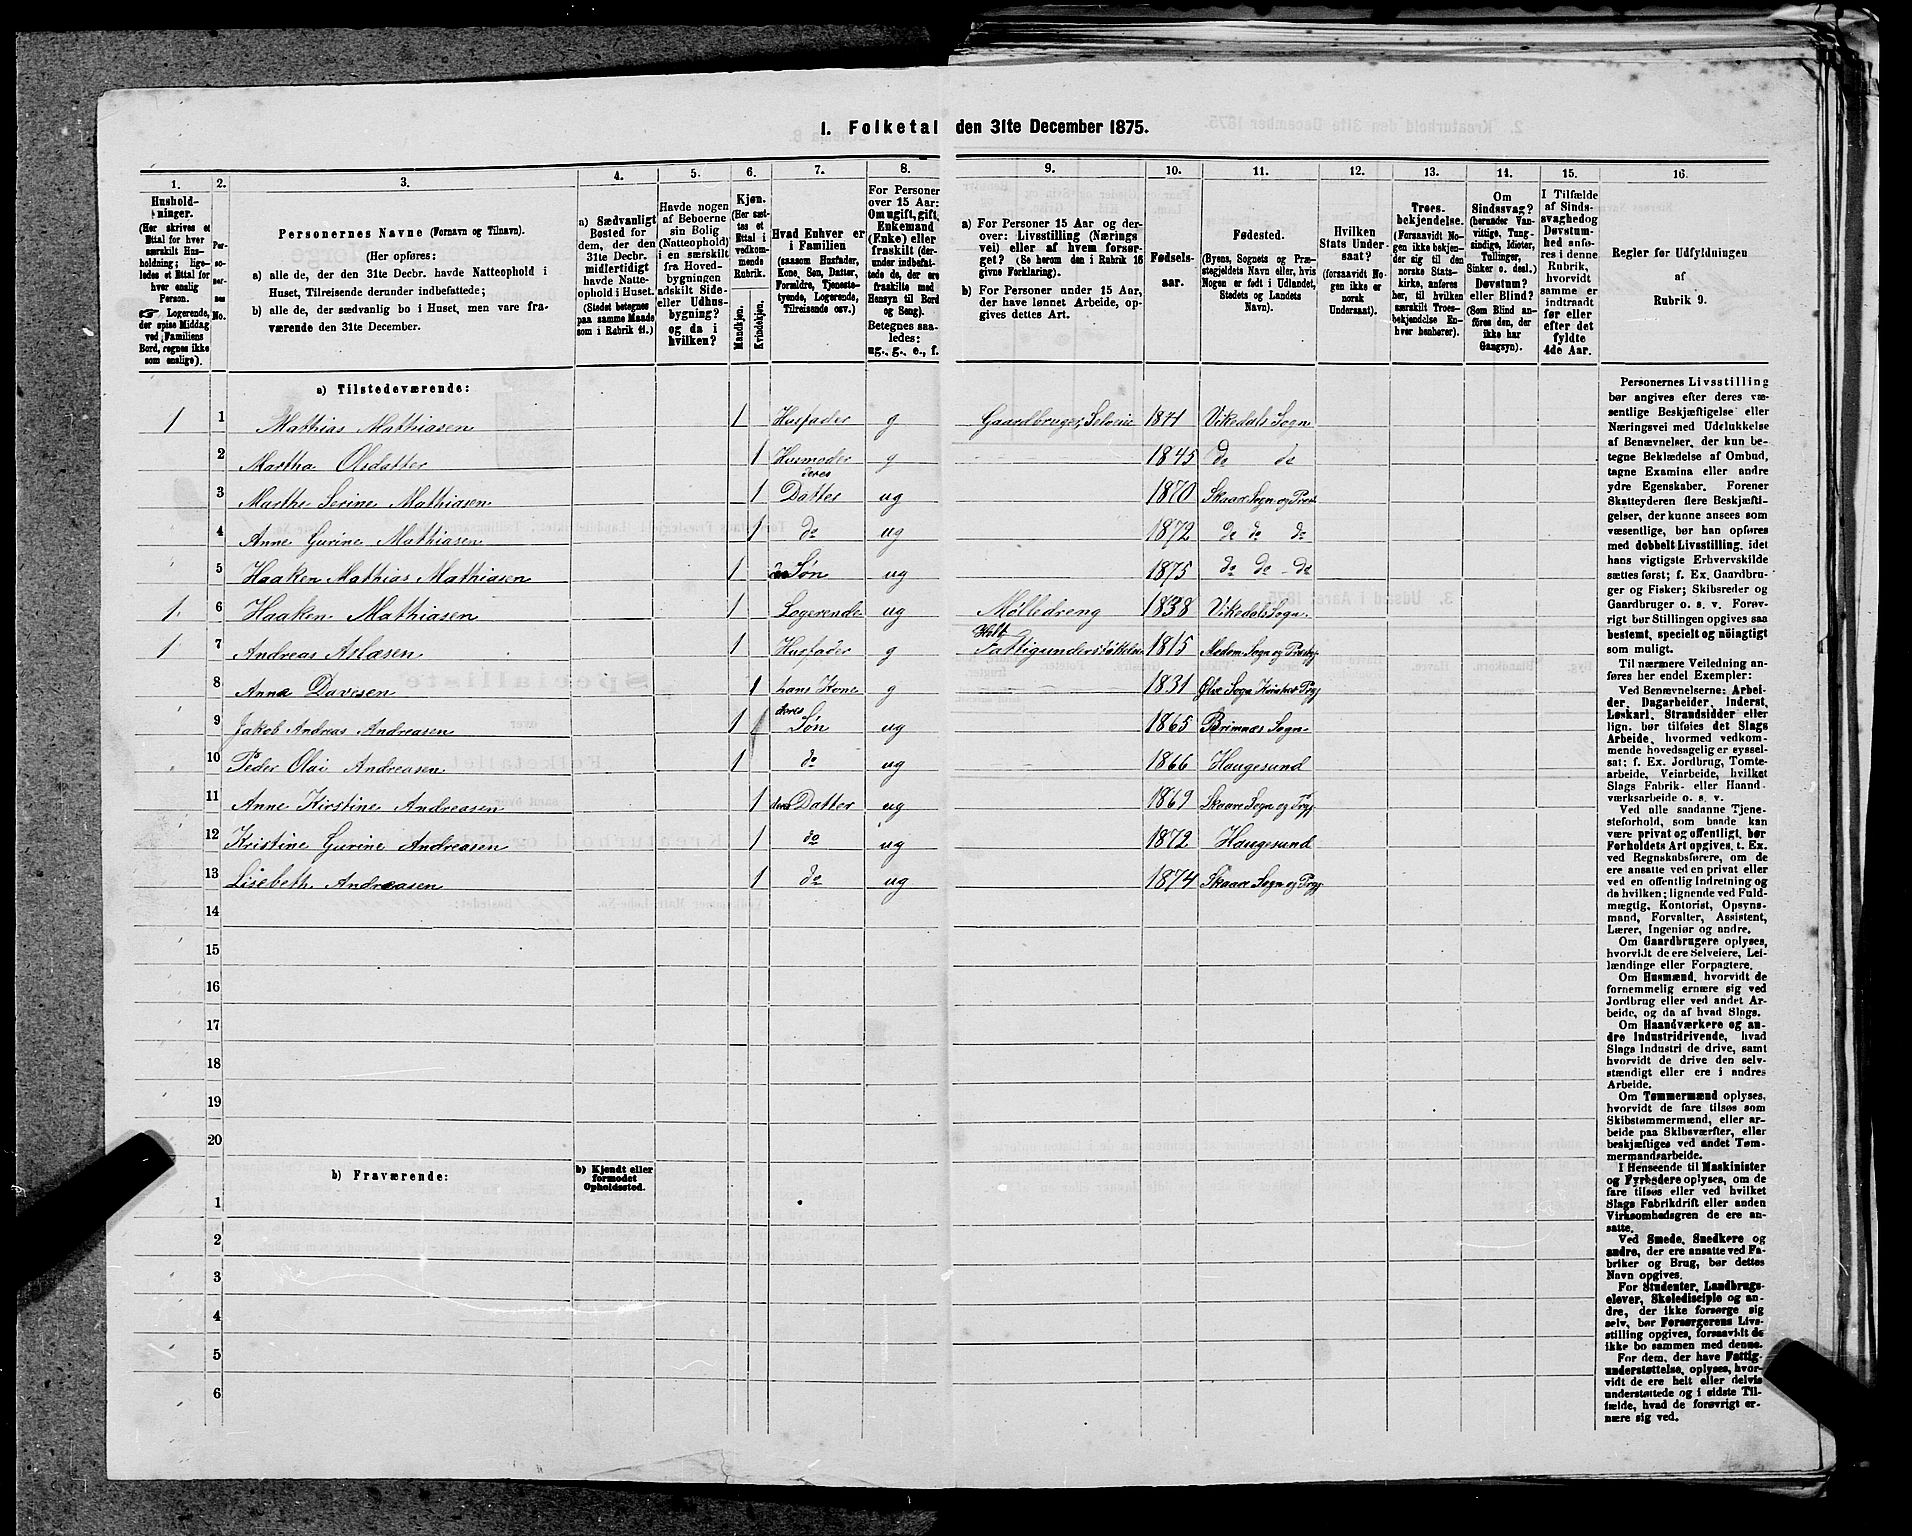 1. Folketal den 31te December 1875.
1. 2. 3. 4. 5. 6. 7. 8. 9. 10. 11. 12. 13. 14. 15. 16.
Hushold-
ninger.
(Her skrives et
Ettal for hver
særskilt Hus-
holdning; lige-
ledes et Ettal for
hver enslig
Person.
Logerende,
der spise Middag
ved Familiens
Bord, regnes ikke
som enslige).
Per-
so-
ner-
nes
No.
Personernes Navne (Fornavn og Tilnavn).
(Her opføres:
a) alle de, der den 31te Decbr. havde Natteophold i
Huset, Tilreisende derunder indbefattede;
b) alle de, der sædvanlig bo i Huset, men vare fra-
værende den 31te December.
a) Sædvanligt
Bosted for
dem, der den
31te Decbr.
midlertidigt
havde Natte-
ophold i Huset.
(Stedet betegnes
paa samme Maade
som i Rubrik 11.)
Havde nogen
af Beboerne
sin Bolig
(Natteophold)
i en særskilt
fra Hoved-
bygningen
adskilt Side-
eller Udhus-
bygning?
og da i
hvilken?
Kjøn.
(Her sæt-
tes et
Ettal i
vedkom-
mende
Rubrik.
Mandkjøn.
Kvindekjøn.
Hvad Enhver er
i Familien
(saasom Husfader,
Kone, Søn, Datter,
Forældre, Tjeneste-
tyende, Logerende,
Tilreisende osv.)
For Personer
over 15 Aar:
Om ugift, gift,
Enkemand
(Enke) eller
fraskilt (der-
under indbefat-
tede de, der ere
fraskilte med
Hensyn til Bord
og Seng).
Betegnes saa-
ledes:
ug., g., e., f.
a) For Personer 15 Aar og der-
over: Livsstilling (Nærings-
vei) eller af hvem forsør-
get? (Se herom den i Rubrik 16
givne Forklaring).
b) For Personer under 15 Aar,
der have lønnet Arbeide, op-
gives dettes Art.
Fødsels-
aar.
Fødested.
(Byens, Sognets og Præ-
stegjeldets Navn eller, hvis
Nogen er født i Udlandet,
Stedets og Landets
Navn).
Hvilken
Stats Under-
saat?
(forsaavidt No-
gen ikke er
norsk
Undersaat).
Troes-
bekjendelse.
(Forsaavidt No-
gen ikke bekjen-
der sig til den
norske Stats-
kirke, anføres
her, til hvilken
særskilt Troes-
bekjendelse En-
hver henhører).
Om
Sindssvag?
(herunder Van-
vittige, Tung-
sindige, Idioter,
Tullinger,
Sinker o. desl.)
Døvstum?
eller Blind?
(Som Blind an-
føres den, der
ikke har
Gangsyn).
I Tilfælde
af Sinds-
svaghed og
Døvstum-
hed anfø-
res i denne
Rubrik,
hvorvidt
samme er
indtraadt
før eller
efter det
fyldte
4de Aar.
Regler før Udfyldningen
af
Rubrik 9.
a) Tilstedeværende:
1 1 Mathias Mathiasen 1 Husfader g Gaardbruger, Selveier 1841 Vikedals Sogn
2 Martha Olsdatter 1 Husmoder g 1845 do do
3 Marthe Serine Mathiasen 1 deres Datter ug 1870 Skaar Sogn og Præst
4 Anne Gurine Mathiasen 1 do ug 1872 do do do
5 Haaken Mathias Mathiasen 1 Søn ug 1875 do do do
1. 6 Haaken Mathiasen 1 Logerende ug Mølledreng 1838 Vikedals Sogn.
1 7 Andreas Aslasen 1 Husfader g Helt 1815
8 Anna Davesen 1 hans Kone g 1831
9 Jakob Andreas Andreasen 1 deres Søn ug 1865 Sogn
10 Peder Olai Andreasen 1 do ug 1866 Haugesund
11 Anne Kirstine Andreasen 1 Datter ug 1869 Skaare Sogn og Prgj
12 Kristine Gurine Andreasen 1 do ug 1872 Haugesund
13 Lisebeth Andreasen 1 do ug 1874 Skaare Sogn og Prgj
14
15
16
17
18
19
20
b) Fraværende:
b) Kjendt eller
formodet
Opholdssted.
1
2
3
4
5
6
Personernes Livsstilling
bør angives efter deres væ-
sentlige Beskjæftigelse eller
Næringsvei med Udelukkelse
af Benævnelser, der kun be-
tegne Beklædelse af Ombud,
tagne Examina eller andre
ydre Egenskaber. Forener
Skatteyderen flere Beskjæfti-
gelser, der kunne ansees som
væsentlige, bør han opføres
med dobbelt Livsstilling, idet
hans vigtigste Erhvervskilde
sættes først; f. Ex. Gaardbru-
ger og Fisker; Skibsreder og
Gaardbruger o. s. v. Forøv-
rigt bør Stillingen opgives saa
bestemt, specielt og nøiagtigt
som muligt.
Til nærmere Veiledning an-
føres her endel Exempler:
Ved Benævnelserne: Arbei-
der, Dagarbeider, Inderst,
Løskarl, Strandsidder eller
lign. bør tilføies det Slags
Arbeide, hvormed vedkom-
mende hovedsagelig er syssel-
sat; f. Ex. Jordbrug, Tomte-
arbeide, Veiarbeide, hvilket
Slags Fabrik- eller Haand-
værksarbeide o. s. v.
Ved alle saadanne Tjene-
steforhold, som baade kan
være privat og offentligt, bør
Forholdets Art opgives, t. Ex.
ved Regnskabsførere, om de
ere ansatte ved en privat eller
ved en offentlig Indretning og
da hvilken; lignende ved Fuld-
mægtig, Kontorist, Opsyns-
mand, Forvalter, Assistent,
Lærer, Ingeniør og andre.
Om Gaardbrugere oplyses,
hvorvidt de ere Selveiere, Lei-
lændinge eller Forpagtere.
Om Husmænd, hvorvidt de
fornemmelig ernære sig ved
Jordbrug eller ved andet Ar-
beide, og da af hvad Slags.
Om Haandværkere og an-
dre Industridrivende, hvad
Slags Industri de drive, samt
hvorvidt de drive den selv-
stændigt eller ere i andres
Arbeide.
Om Tømmermænd oplyses,
hvorvidt de fare tilsøs som
Skibstømmermænd, eller ar-
beide paa Skibsværfter, eller
beskjæftiges ved andet Tøm-
mermandsarbeide.
I Henseende til Maskinister
og Fyrbødere oplyses, om de
fare tilsøs eller ved hvilket
Slags Fabrikdrift eller anden
Virksomhedsgren de ere an-
satte.
Ved Smede, Snedkere og
andre, der ere ansatte ved Fa-
briker og Brug, bør dettes
Navn opgives.
For Studenter, Landbrugs-
elever, Skoledisciple og an-
dre, der ikke forsørge sig
selv, bør Forsørgerens Livs-
stilling opgives, forsaavidt de
ikke bo sammen med denne.
For dem, der have Fattig-
understøttelse, oplyses, hvor-
vidt de ere helt eller delvis
understøttede og i sidste Til-
fælde, hvad de forøvrigt er-
nære sig ved.